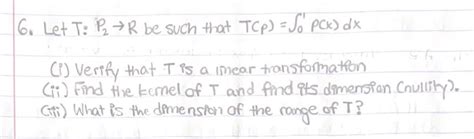 6. Let T: P₂ → R be such that T(p) = ∫₀¹ p(x) dx
(i) Verify that T is a linear transformation
(ii) Find the kernel of T and find its dimension (nullity).
(iii) What is the dimension of the range of T?